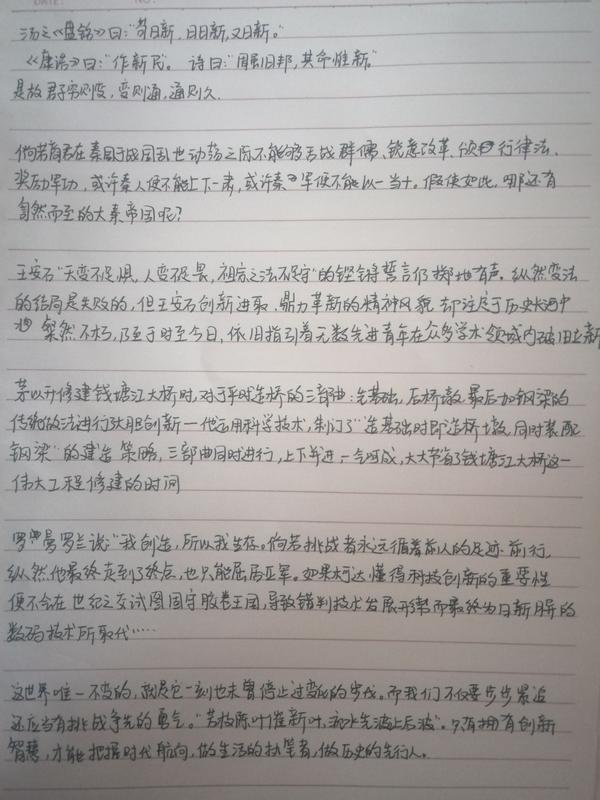 汤之《盘铭》曰："苟日新，日日新，又日新。"
《康诰》曰："作新民。 诗曰："周虽旧邦，其命惟新。"
是故君子穷则变，变则通，通则久.
倘若商君在秦国于战国乱世动荡之际不能够舌战群儒、锐意改革、颁行律法、
奖励军功，或许秦人便不能上下一肃，或许秦军便不能以一当十。假使如此，哪还有
自然而至的大秦帝国呢？
王安石"天变不足惧，人变不足畏，祖宗之法不足守"的铿锵誓言仍掷地有声。纵然变法
的结局是失败的，但王安石创新进取、鼎力革新的精神风貌却注定于历史长河中
粲然不朽，乃至于时至今日，依旧指引着无数先进青年在众多学术领域内破旧立新
茅以升修建钱塘江大桥时，对于平时造桥的三部曲：先基础，后桥墩，最后加钢梁的
传统做法进行大胆创新—他运用科学技术，制订了"造基础时即造桥墩，同时装配
钢梁"的建造策略，三部曲同时进行，上下并进，一气呵成，大大节省了钱塘江大桥这一
伟大工程修建的时间
罗曼罗兰说："我创造，所以我生存。倘若挑战者永远循着前人的足迹前行，
纵然他最终走到了终点，也只能屈居亚军。如果柯达懂得科技创新的重要性
便不会在世纪之交试图固守胶卷王国，导致错判技术发展形势而最终为日新月异的
数码技术所取代……
这世界唯一不变的，就是它一刻也未曾停止过变化的步伐。而我们不仅要步步紧追
还应当有挑战争先的勇气。"芳林陈叶催新叶，流水先波让后波"。只有拥有创新
智慧，才能把握时代航向，做生活的执笔者，做历史的先行人。